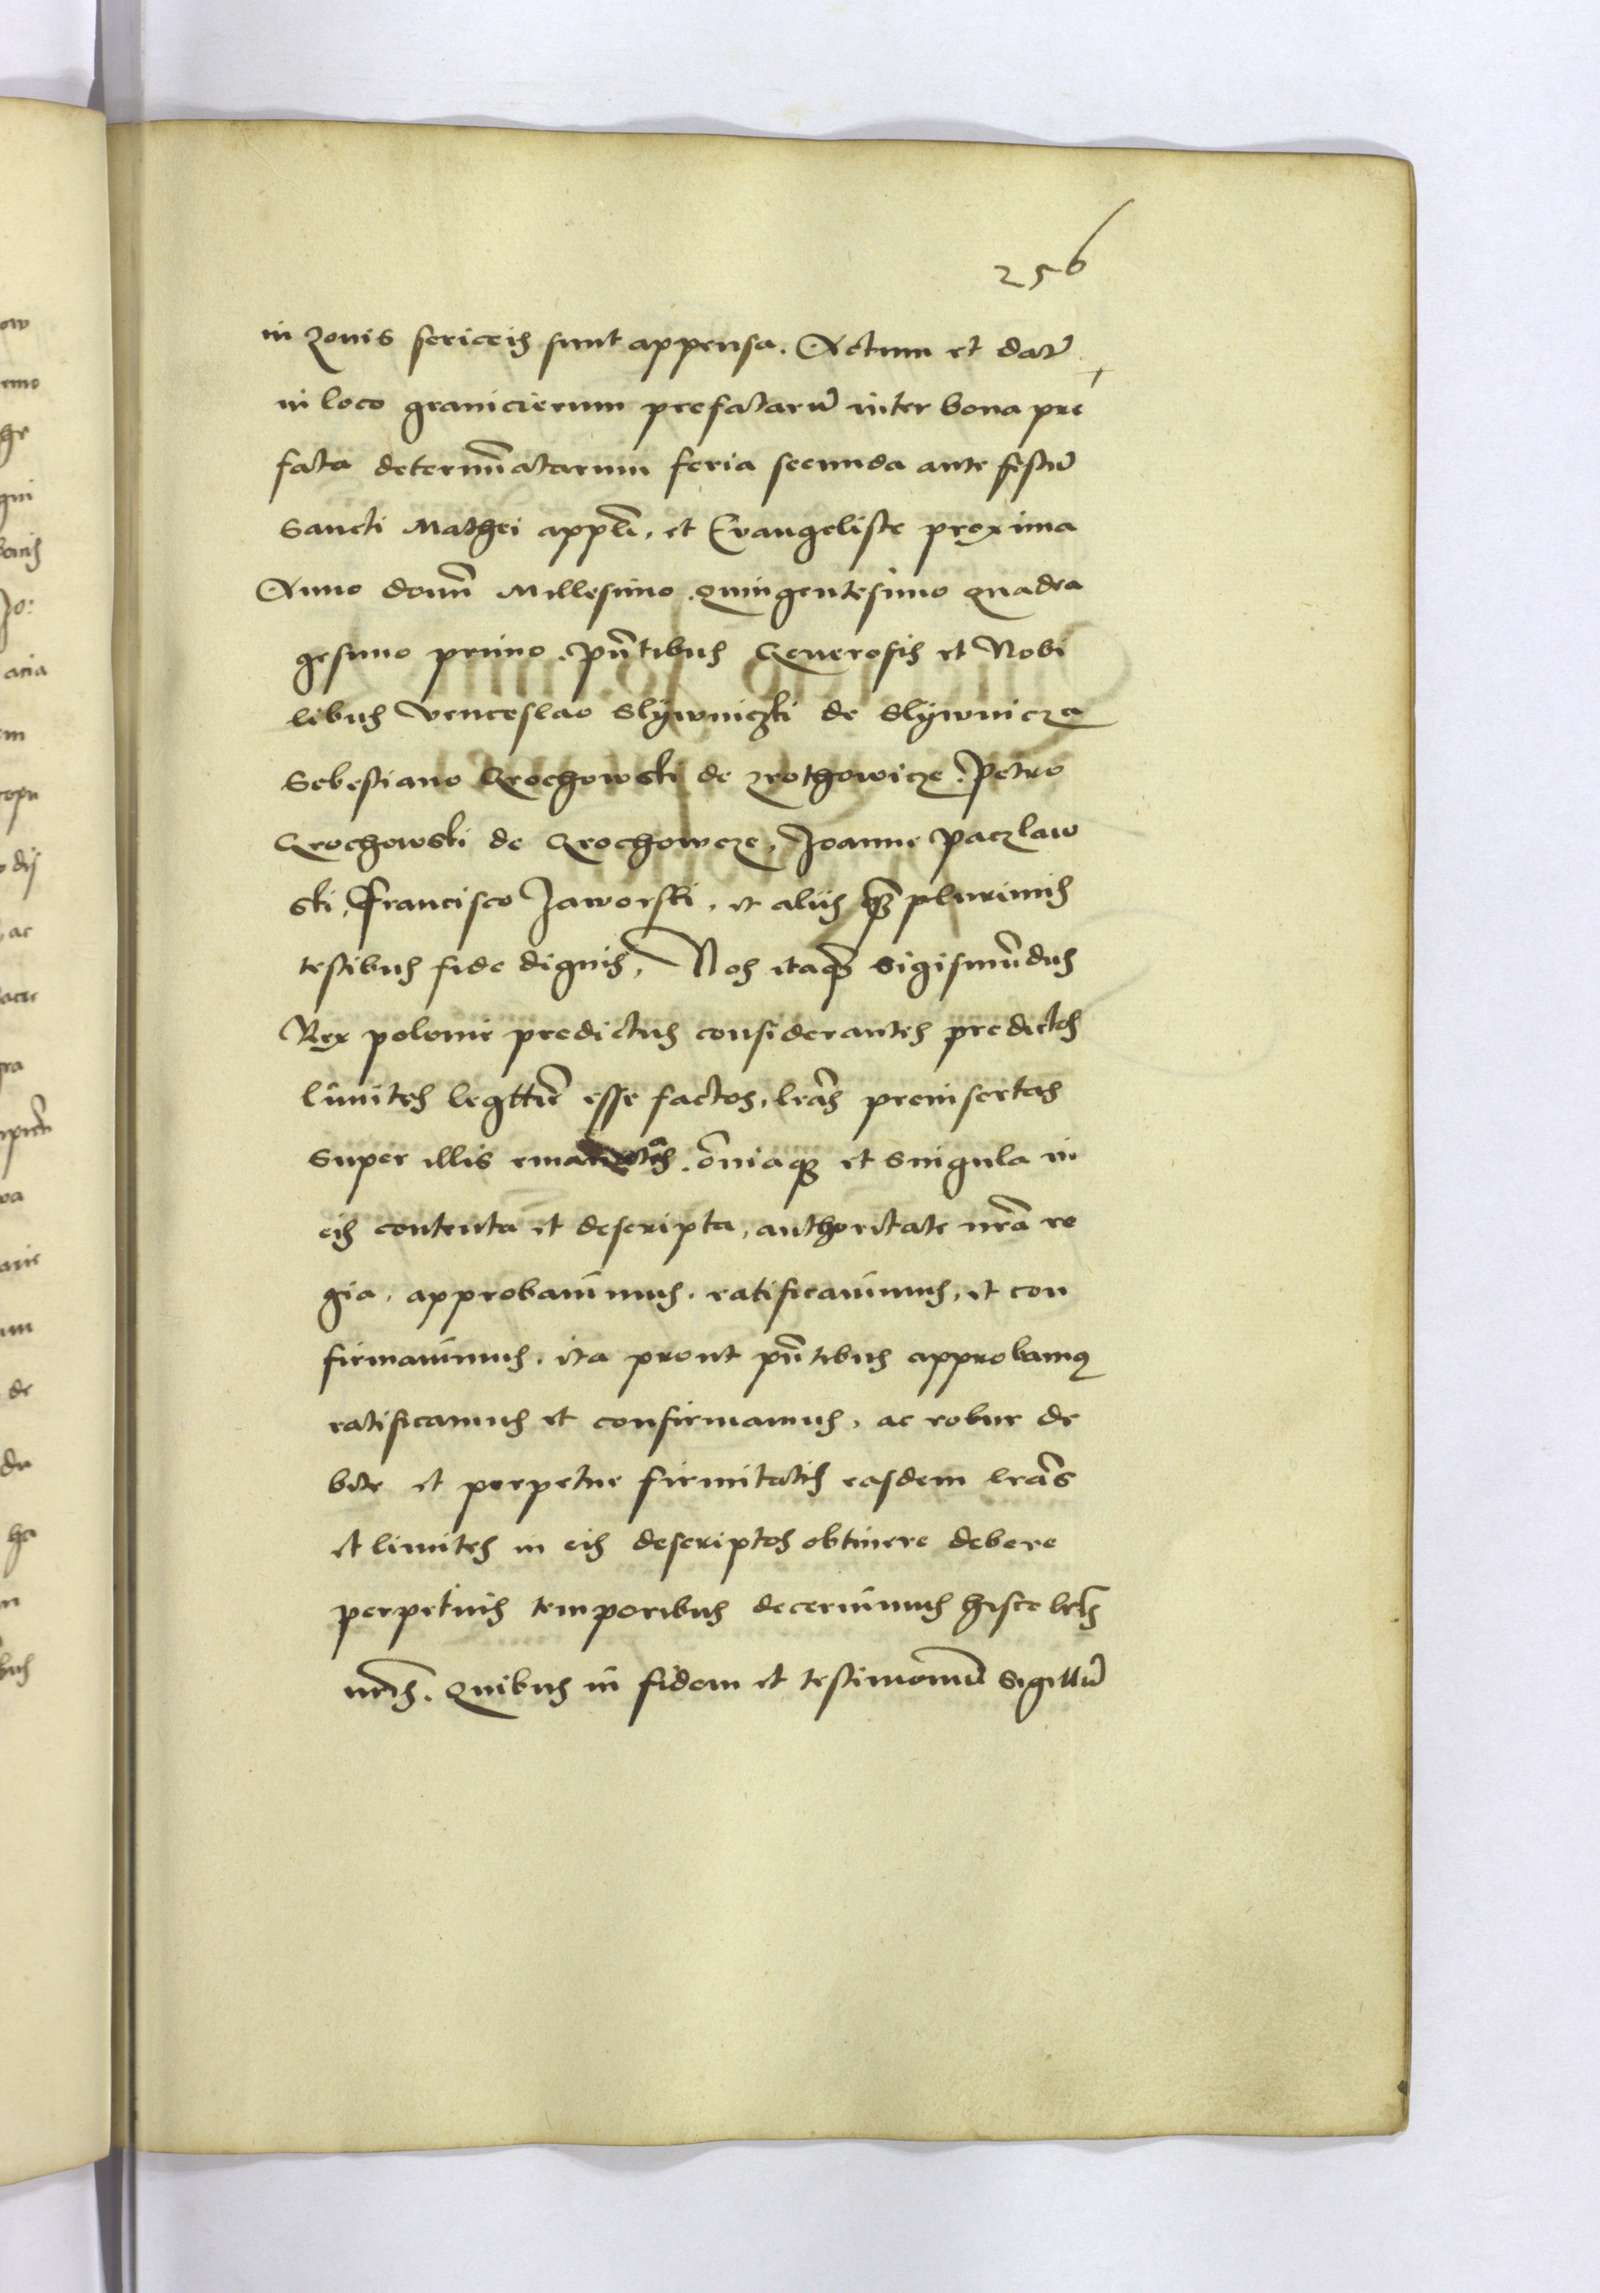 256
in zonis sericeis sunt appensa. Actum et datũ
in loco granicierum prefatarũ inter bona pre
fata determĩatarum feria secunda ante festũ
Sancti Mathei appl̃i, et Evangeliste proxima
Anno domĩ Millesimo quingentesimo quadra
gesimo primo. pñtibus Generosis et Nobi
libus Venceslao Slÿwniczki de Slÿwnicza
Sebestiano Grochowski de Zrothowicze. Petro
Grochowski de Grochowcze, Joanne Paczlaw
ski, Francisco Jaworski, et aliis q̃ plurimis
testibus fide dignis, Nos itaq̃ Sigismũdus
Rex polonie predictus considerantes predictos
limites legittĩe esse factos, l̃ras preinsertas
super illis emanatas. õniaq et singula in
eis contenta et descripta, authoritate nr̃a re
gia, approbavimus, ratificavimus, et con
firmavimus, ita prout pñtibus approbamus
ratificamus et confirmamus, ac robur de
bite et perpetue firmitatis easdem l̃ras
et limites in eis descriptos obtinere debere
perpetuis temporibus decernimus hisce l̃ris
nr̃is. Quibus in fidem et testimoniũ Sigillũ